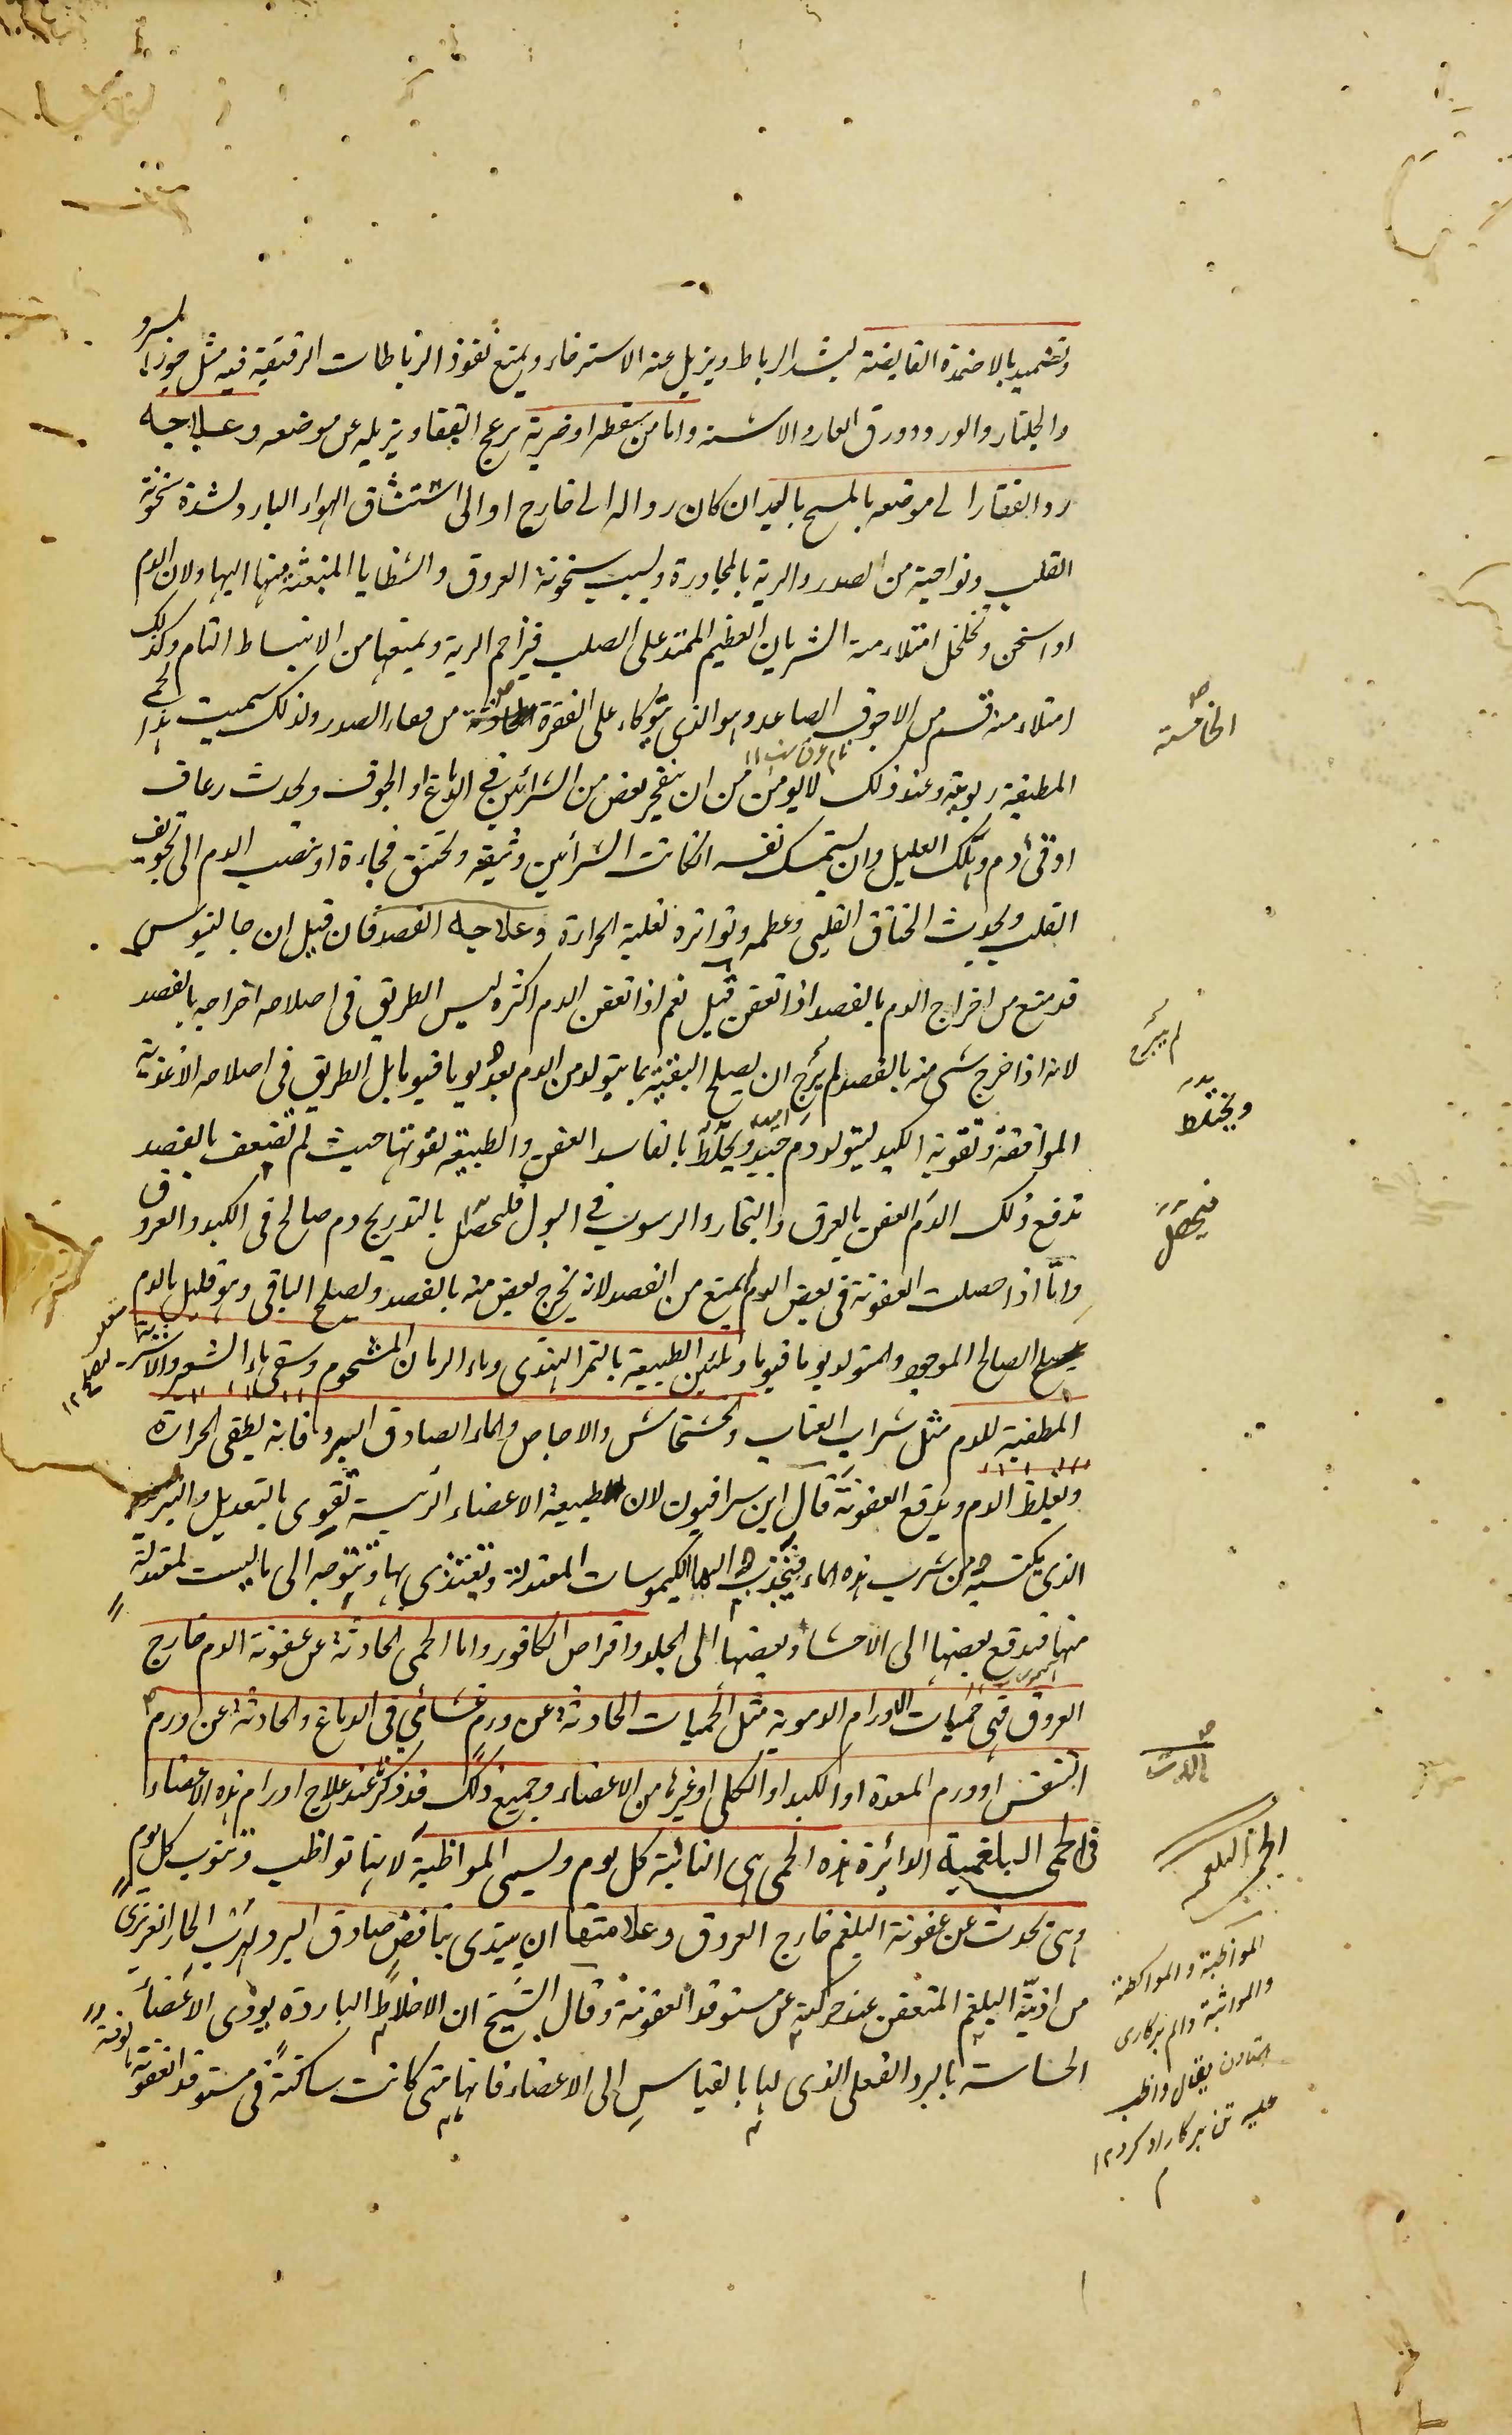 وتضميد بالاضمدة القابضة ليشد الرباط ويزيل عنه الاسترخاء ويمنع نفوذ الرباطات الرقيقة فيه مثل جوز السرو
والجلنار والورد وورق الغار والاشنه واما من سقطه او ضربة يزعج الفقار ويزيله عن موضعه وعلاجه
رد الفقار الى موضعه بالمسح باليد ان كان زواله الى خارج او الى استنشاق الهواء البارد لشدة سخونة
القلب ونواحيه من الصدر والرية بالمجاورة وبسبب سخونة العروق والشظايا المنبعثة منها اليها ولان الدم
اذا سخن وتخلخل امتلاء منه الشريان العظيم الممتد على الصلب فيزاحم الرية ويمنعها من الانبساط التام وكذلك
امتلاء منه قسم من الاجوف الصاعد وهو الذي يتوكاء على الفقرة من فقار الصدر ولذلك سميت هذا الحمى
المطبقة ربوية وعند ذلك لا يومن من ان ينفجر بعض من الشرائين في الدماغ او الجوف ويحدث رعاف
او قئ دم ويهلك العليل وان يستمسك نفسه انكانت الشرائين وثيقة ويختنق فجاءة او ينصب الدم الى تجويف
القلب ويحدث الخناق القلبي وعظمه وتواتره لغلبة الحرارة وعلاجه الفصد فان قيل ان جالينوس
قد منع من اخراج الدم بالفصد اذا تعفن قيل نعم اذا تعفن الدم اكثره ليس الطريق في اصلاحه اخراجه بالفصد
لانه اذا خرج شئ منه بالفصد لم يرج ان يصلح البقية بما يتولد من الدم بعد يوما فيوما بل الطريق في اصلاحه الاغذية
الموافقة وتقوية الكبد ليتولد دم جيد ويختلط بالفاسد العفن والطبيعة لقوتها حيث لم تضعف بالفصد
تدفع ذلك الدم العفن بالعرق والبخار والرسوب في البول فيحصل بالتدريج دم صالح في الكبد والعروق
واما اذا حصلت العفونة في بعض الدم لم يمنع من الفصد لانه يخرج بعض منه بالفصد ويصلح الباقي وهو قليل بالدم
الصالح الموجود والمتولد يوما فيوما وتليين الطبيعة بالتمر الهندي وماء الرمان المشحوم وسقي ماء الشعير والاشربة
المطفية للدم مثل شراب العناب والخشخاش والاجاص والماء الصادق البرد فانه يطفي الحرارة
ويغلظ الدم ويدفع العفونة قال ابن سرافيون لان طبيعة الاعضاء الرئيسة تقوى بالتعديل والتبريد
الذي يكتسبه من شرب هذه الماء فينجذب اليها الكيموسات المعتدلة وتغتذي بها وتتوجه الى ما ليست بمعتدلة
منها فيدفع بعضها الى الاحشاء وبعضها الى الجلد واقراص الكافور واما الحمى الحادثة عن عفونة الدم خارج
العروق فهي حميات الاورام الدموية مثل الحميات الحادثة عن ورم غشائي في الدماغ والحادثة عن اورم
التنفس او ورم المعدة او الكبد او الكلى او غيرها من الاعضاء وجميع ذلك قد ذكر عند علاج اورام هذه الاعضاء
في الحمى البلغمية الدائرة هذه الحمى هي النائبة كل يوم ويسمى المواظبة لانها تواظب وتنوب كل يوم
وهي تحدث عن عفونة البلغم خارج العروق وعلامتها ان يبتدي بنافض صادق البرد لهرب الحار الغريزي
من اذية البلغم المتعفن عند حركته عن مستوقد العفونة وقال الشيخ ان الاخلاط الباردة يوذى الاعضاء
الحساسة بالبرد الفعلي الذي لها بالقياس الى الاعضاء فانها متى كانت ساكنة في مستوقد العفونة
الخامسة
ويختلط
فيحصل
الحمى البلغمية
المواظبة والمواكظة
والمثابرة دائم بركاري
يقال واظب
عليه